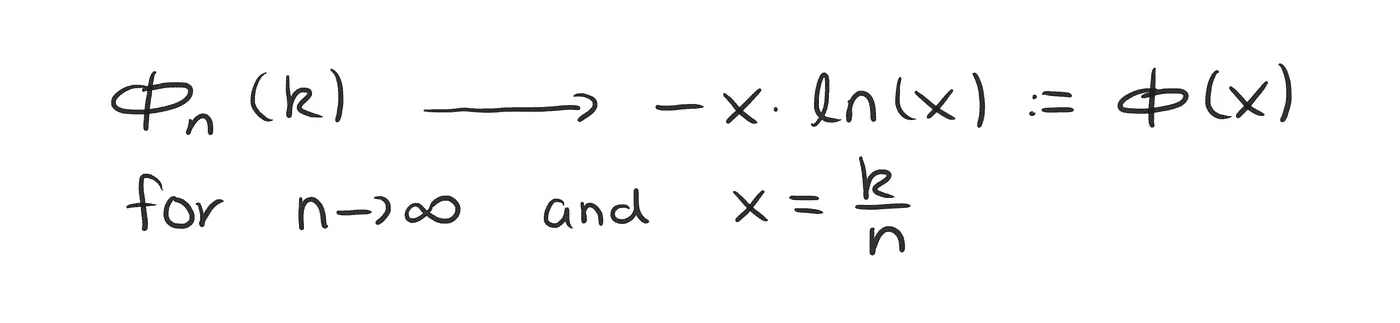 Φₙ(k) ⟶ −x · ln(x) := Φ(x)
for n→∞ and x = k/n